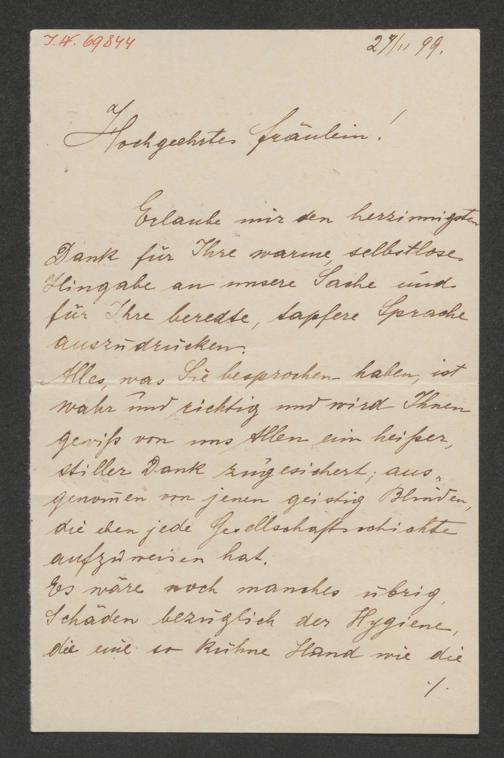 I.N. 69844
27/11 99.
Hochgeehrtes Fräulein!
Erlaube mir den herzinnigsten
Dank für Ihre warme, selbstlose
Hingabe an unsere Sache und
für Ihre beredte, tapfere Sprache
auszudrücken.
Alles, was Sie besprochen haben, ist
wahr und richtig und wird Ihnen
gewiß von uns Allen ein heißer,
stiller Dank zugesichert; aus-
genom̄en von jenen geistig Blinden,
die eben jede Gesellschaftsschichte
aufzuweisen hat.
Es wäre noch manches übrig,
Schäden bezüglich der Hygiene,
die eine so kühne Hand wie die
./.